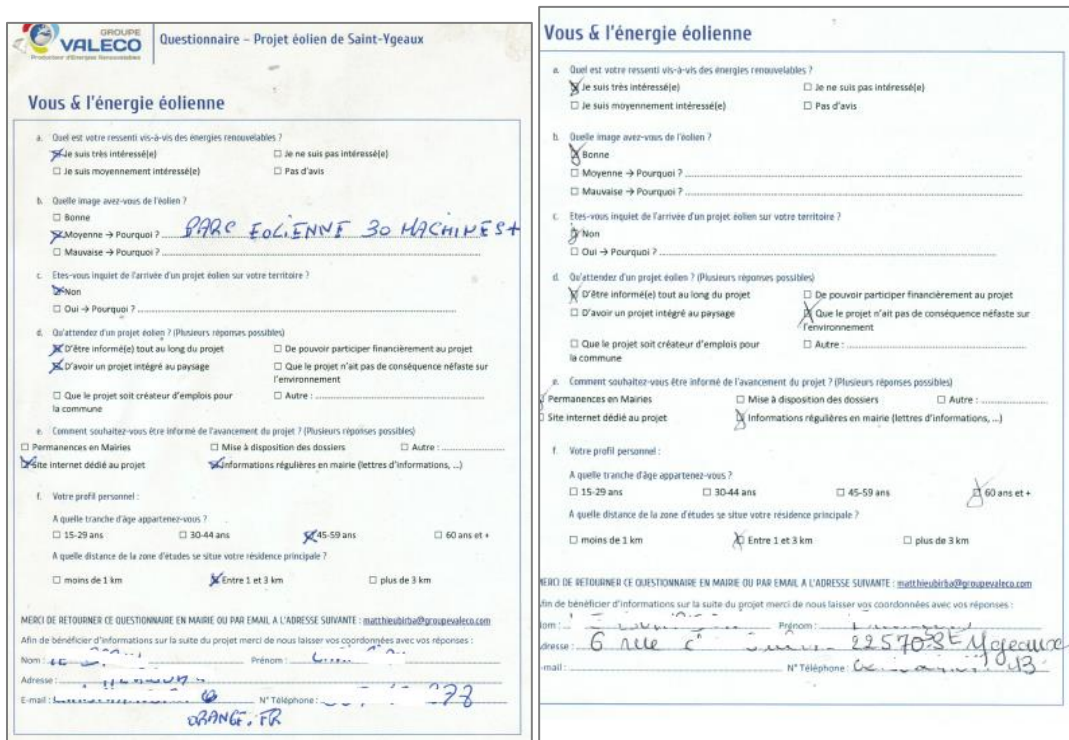 GROUPE
VALECO
Producteur d'Energies Renouvelables
Questionnaire – Projet éolien de Saint-Ygeaux
Vous & l'énergie éolienne
a. Quel est votre ressenti vis-à-vis des énergies renouvelables ?
Je suis très intéressé(e) ☐ Je ne suis pas intéressé(e)
☐ Je suis moyennement intéressé(e) ☐ Pas d'avis
b. Quelle image avez-vous de l'éolien ?
☐ Bonne
Moyenne → Pourquoi ? PARC EOLIENNE 30 MACHINES+
☐ Mauvaise → Pourquoi ?
c. Etes-vous inquiet de l'arrivée d'un projet éolien sur votre territoire ?
Non
☐ Oui → Pourquoi ?
d. Qu'attendez d'un projet éolien ? (Plusieurs réponses possibles)
D'être informé(e) tout au long du projet ☐ De pouvoir participer financièrement au projet
D'avoir un projet intégré au paysage ☐ Que le projet n'ait pas de conséquence néfaste sur
l'environnement
☐ Que le projet soit créateur d'emplois pour ☐ Autre :
la commune
e. Comment souhaitez-vous être informé de l'avancement du projet ? (Plusieurs réponses possibles)
☐ Permanences en Mairies ☐ Mise à disposition des dossiers ☐ Autre :
Site internet dédié au projet Informations régulières en mairie (lettres d'informations, ...)
f. Votre profil personnel :
A quelle tranche d'âge appartenez-vous ?
☐ 15-29 ans ☐ 30-44 ans 45-59 ans ☐ 60 ans et +
A quelle distance de la zone d'études se situe votre résidence principale ?
☐ moins de 1 km Entre 1 et 3 km ☐ plus de 3 km
MERCI DE RETOURNER CE QUESTIONNAIRE EN MAIRIE OU PAR EMAIL A L'ADRESSE SUIVANTE : matthieubirba@groupevaleco.com
Afin de bénéficier d'informations sur la suite du projet merci de nous laisser vos coordonnées avec vos réponses :
Nom : Prénom :
Adresse :
E-mail : N° Téléphone : 78
ORANGE.FR
Vous & l'énergie éolienne
a. Quel est votre ressenti vis-à-vis des énergies renouvelables ?
Je suis très intéressé(e) ☐ Je ne suis pas intéressé(e)
☐ Je suis moyennement intéressé(e) ☐ Pas d'avis
b. Quelle image avez-vous de l'éolien ?
Bonne
☐ Moyenne → Pourquoi ?
☐ Mauvaise → Pourquoi ?
c. Etes-vous inquiet de l'arrivée d'un projet éolien sur votre territoire ?
Non
☐ Oui → Pourquoi ?
d. Qu'attendez d'un projet éolien ? (Plusieurs réponses possibles)
D'être informé(e) tout au long du projet ☐ De pouvoir participer financièrement au projet
☐ D'avoir un projet intégré au paysage Que le projet n'ait pas de conséquence néfaste sur
l'environnement
☐ Que le projet soit créateur d'emplois pour ☐ Autre :
la commune
e. Comment souhaitez-vous être informé de l'avancement du projet ? (Plusieurs réponses possibles)
Permanences en Mairies ☐ Mise à disposition des dossiers ☐ Autre :
Site internet dédié au projet Informations régulières en mairie (lettres d'informations, ...)
f. Votre profil personnel :
A quelle tranche d'âge appartenez-vous ?
☐ 15-29 ans ☐ 30-44 ans ☐ 45-59 ans 60 ans et +
A quelle distance de la zone d'études se situe votre résidence principale ?
☐ moins de 1 km Entre 1 et 3 km ☐ plus de 3 km
MERCI DE RETOURNER CE QUESTIONNAIRE EN MAIRIE OU PAR EMAIL A L'ADRESSE SUIVANTE : matthieubirba@groupevaleco.com
Afin de bénéficier d'informations sur la suite du projet merci de nous laisser vos coordonnées avec vos réponses :
Nom : Prénom :
Adresse : 6 rue 22570 St Ygeaux
E-mail : N° Téléphone : 13